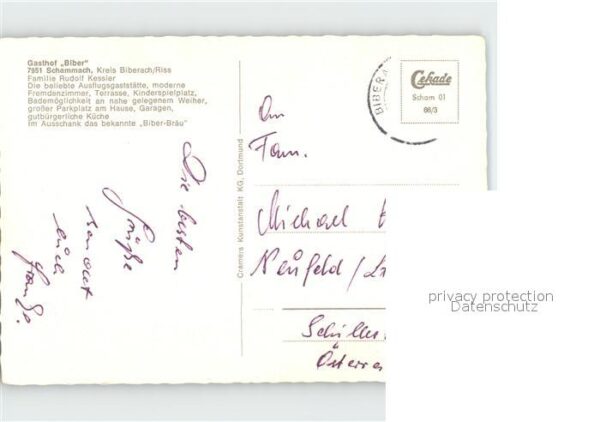 Gasthof „Biber"
7951 Schammach, Kreis Biberach/Riss
Familie Rudolf Kessler
Die beliebte Ausflugsgaststätte, moderne
Fremdenzimmer, Terrasse, Kinderspielplatz,
Bademöglichkeit an nahe gelegenem Weiher,
großer Parkplatz am Hause, Garagen,
gutbürgerliche Küche
Im Ausschank das bekannte „Biber-Bräu"
Die besten
Grüße
sendet
euch
Cramers Kunstanstalt KG, Dortmund
BIBERA
Cekade
Scham 01
66/3
An
Fam.
Michael
Neufeld/
Schüller
Österre
privacy protection
Datenschutz